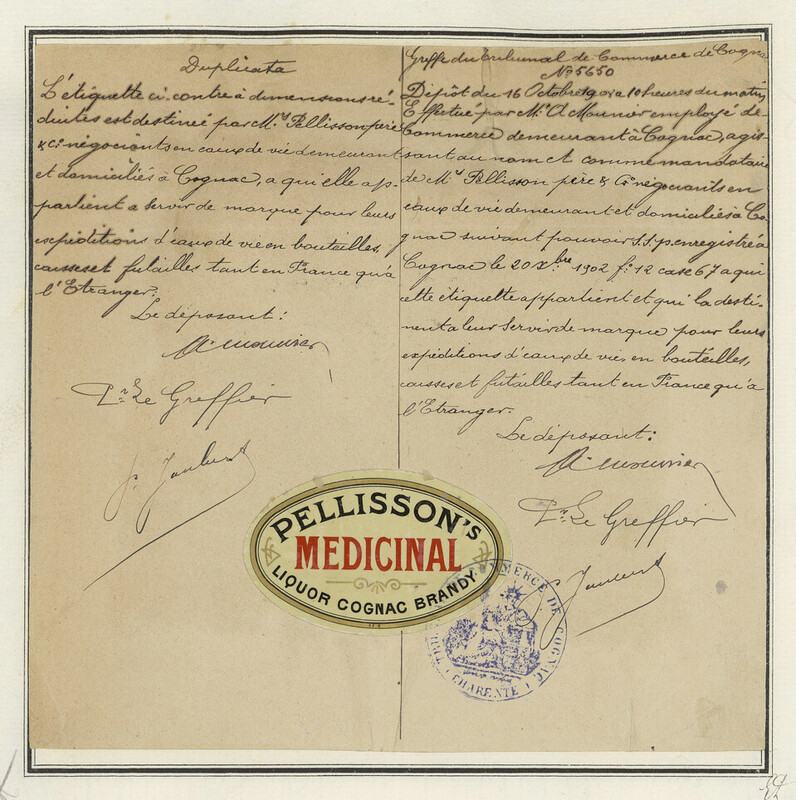 Duplicata
L'étiquette ci-contre à dimensions ré-
duites est destinée par Mrs Pellisson père
& Cie négociants en eaux de vie demeurant
et domiciliés à Cognac, a qui elle ap-
partient a servir de marque pour leurs
expéditions d'eaux de vie en bouteilles,
caisses et futailles tant en France qu'à
l'Etranger.
Le déposant:
A. Mounier
Pr Le Greffier
Greffe du Tribunal de Commerce de Cognac
No 5650
Dépôt du 16 Octobre à 10 heures du matin
Effectué par Mr A Mounier employé de
Commerce demeurant à Cognac, agis-
sant au nom et comme mandataire
de Mrs Pellisson père & Cie négociants en
eaux de vie demeurant et domiciliés à Co
gnac suivant pouvoir S.S.p. enregistré à
Cognac le 20 Xbre 1902 fo 12 case 67 a qui
cette étiquette appartient et qui la desti-
nent a leur servir de marque pour leurs
expéditions d'eaux de vie, en bouteilles,
caisses et futailles tant en France qu'à
l'Etranger.
Le déposant:
A. Mounier
Pr Le Greffier
PELLISSON'S
MEDICINAL
LIQUOR COGNAC BRANDY
COMMERCE DE COGNAC
CHARENTE